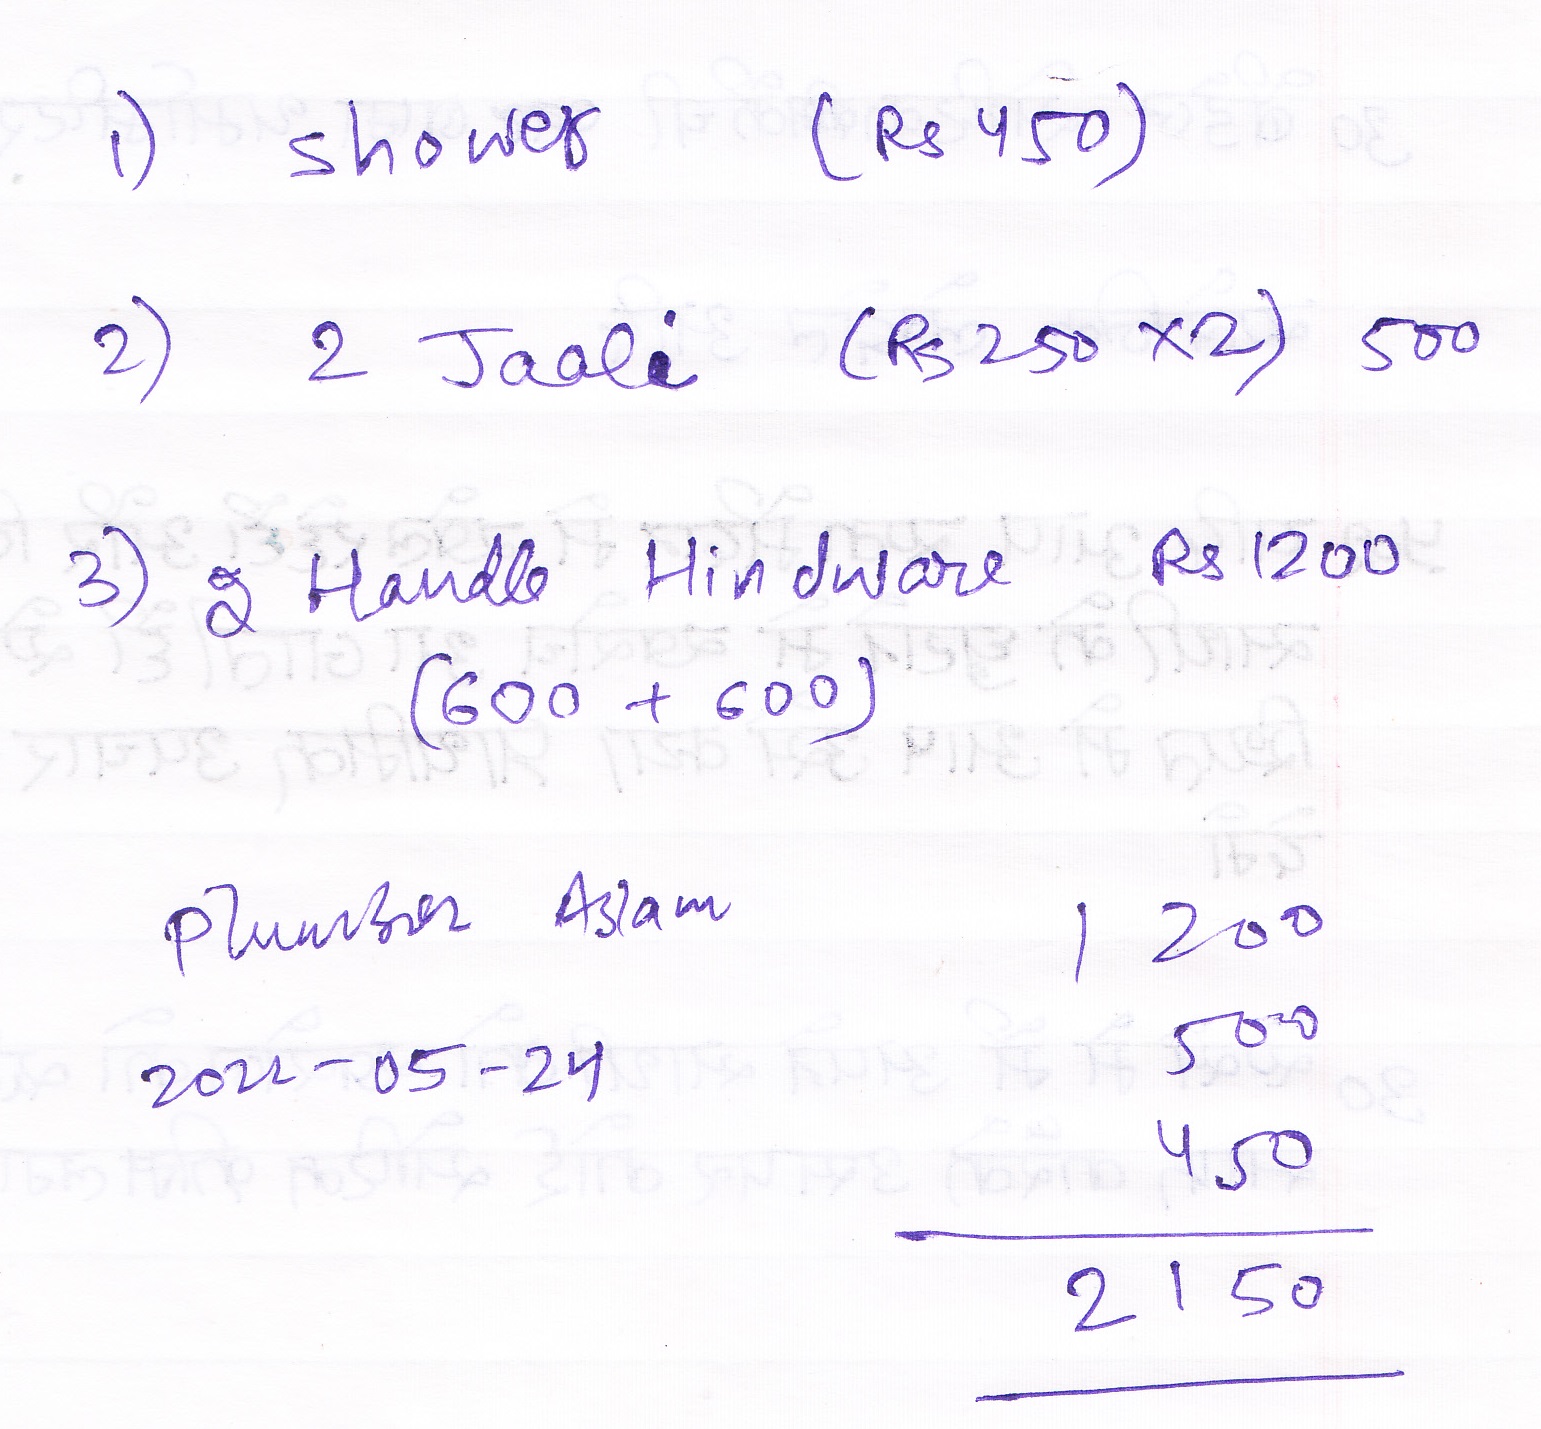 1) Shower (Rs 450)
2) 2 Jaali (Rs 250 x2) 500
3) 2 Handle Hindware Rs 1200
(600 + 600)
Plumber Aslam
2022-05-24
1200
500
450
2150